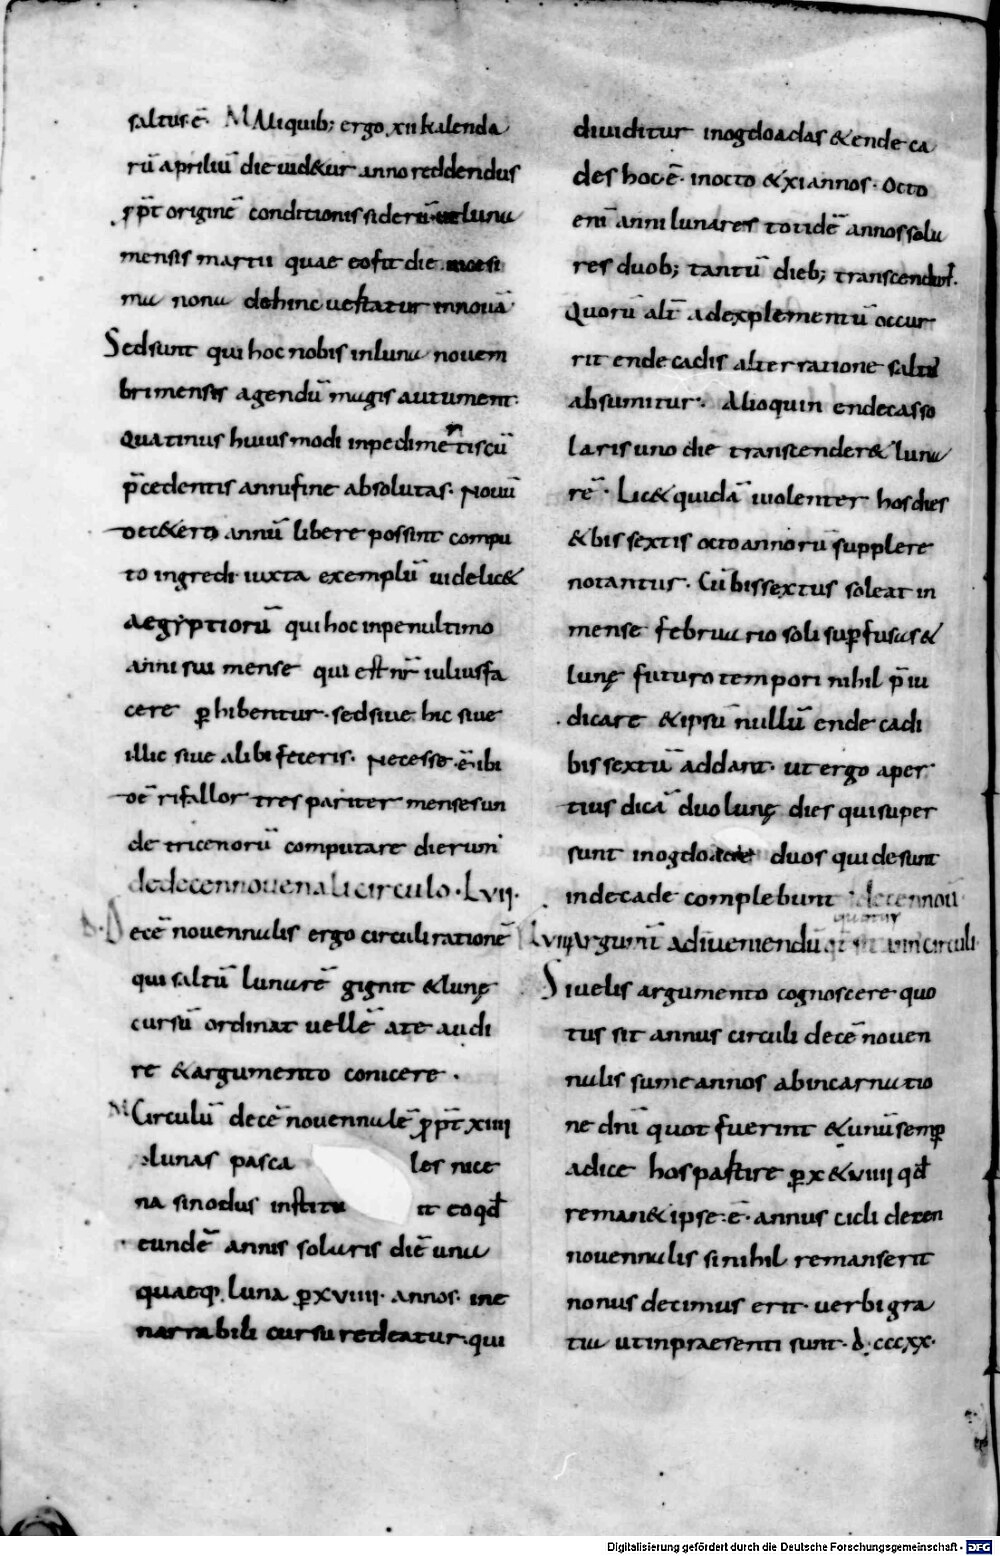 saltus ē. M Aliquib; ergo xii kalenda
rū apriliū die uid&ur anno reddendus
ꝓpt̄ originē conditionis siderū ut luna
mensis martii quae eo fit die uicesi
ma nona dehinc uestatur in nouā
Sed sunt qui hoc nobis in luna nouem
bri mensis agendū magis autument.
Quatinus huius modi inpedimentis cū
p̄cedentis anni fine absolutas. Nouū
oct&ero annū libere possint compu
to ingredi iuxta exemplū uidelic&
aegyptiorū qui hoc in penultimo
anni sui mense qui est nr̄ iulius fa
cere ꝑhibentur. sed siue hic siue
illic siue alibi feceris. Necesse. ē. ibi
oē ni fallor tres pariter menses un
de tricenorū computare dierum
de decennouenali circulo. Lvii.
Decē nouennalis ergo circuli rationē
qui saltū lunarē gignit & lunę
cursū ordinat uellē a te audi
re & argumento conicere.
M Circulū decē nouennalē ꝓpt̄ xiiii
lunas pasca les nice
na sinodus institu it eo qd̄
eundē annis solaris diē una
quaeq, luna ꝑ xviiii. annos. ine
narrabili cursu redeatur. qui
diuiditur in ogdoadas & ende ca
des hoc ē. in octo & xi annos. Octo
eni anni lunares totidē annos sola
res duob; tantū dieb; transcendunt.
Quorū alt̄ ad explementū occur
rit ende cadis alter ratione saltus
absumitur. Alioquin endecas so
laris uno die transcender& luna
rē. Lic& quidā uiolenter hos dies
& bissextis octo annorū supplere
notantur. Cū bissextus soleat in
mense februario soli supfusus &
lunę futuro tempori nihil p̄iu
dicare & ipsū nullū ende cadi
bissextū addant. ut ergo aper
tius dicā duo lunę dies qui super
sunt in ogdoade duos qui desunt
in decade complebunt decennou
Lviii Argumt̄ adiueniendū quotus sit annus circuli
Si uelis argumento cognoscere quo
tus sit annus circuli decē nouen
nalis sume annos ab incarnatio
ne dn̄i quot fuerint & unū semꝑ
adice hos partire ꝑ x & viiii qd̄
reman& ipse. ē. annus cicli decen
nouennalis si nihil remanserit
nonus decimus erit. uerbi gra
tia ut in praesenti sunt. d.cccxx.
Digitalisierung gefördert durch die Deutsche Forschungsgemeinschaft - DFG